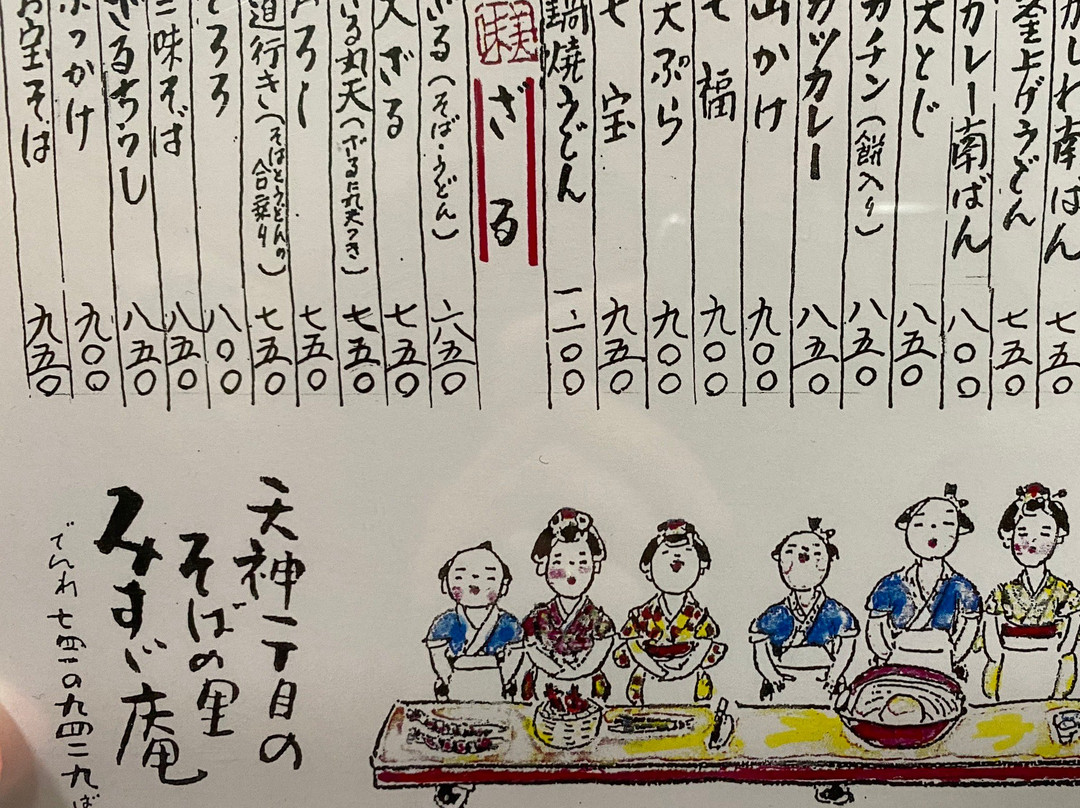 かしわ南ばん 七五〇
釜上げうどん 七五〇
カレー南ばん 八〇〇
天とじ 八五〇
カチン（餅入り） 八五〇
カツカレー 八五〇
山かけ 九〇〇
七福 九〇〇
天ぷら 九〇〇
七宝 九五〇
鍋焼うどん 一二〇〇
美味
ざる
ざる（そば・うどん） 六五〇
大ざる 七五〇
ざる丸天（ざるに丸天つき） 七五〇
おろし 七五〇
道行き（そばとうどんの合乗り） 七五〇
とろろ 八〇〇
三味そば 八五〇
ざるちらし 八五〇
ぶっかけ 九〇〇
お宝そば 九五〇
天神一丁目の
そばの里
みすゞ庵
でんわ 七四一の九四二九ば